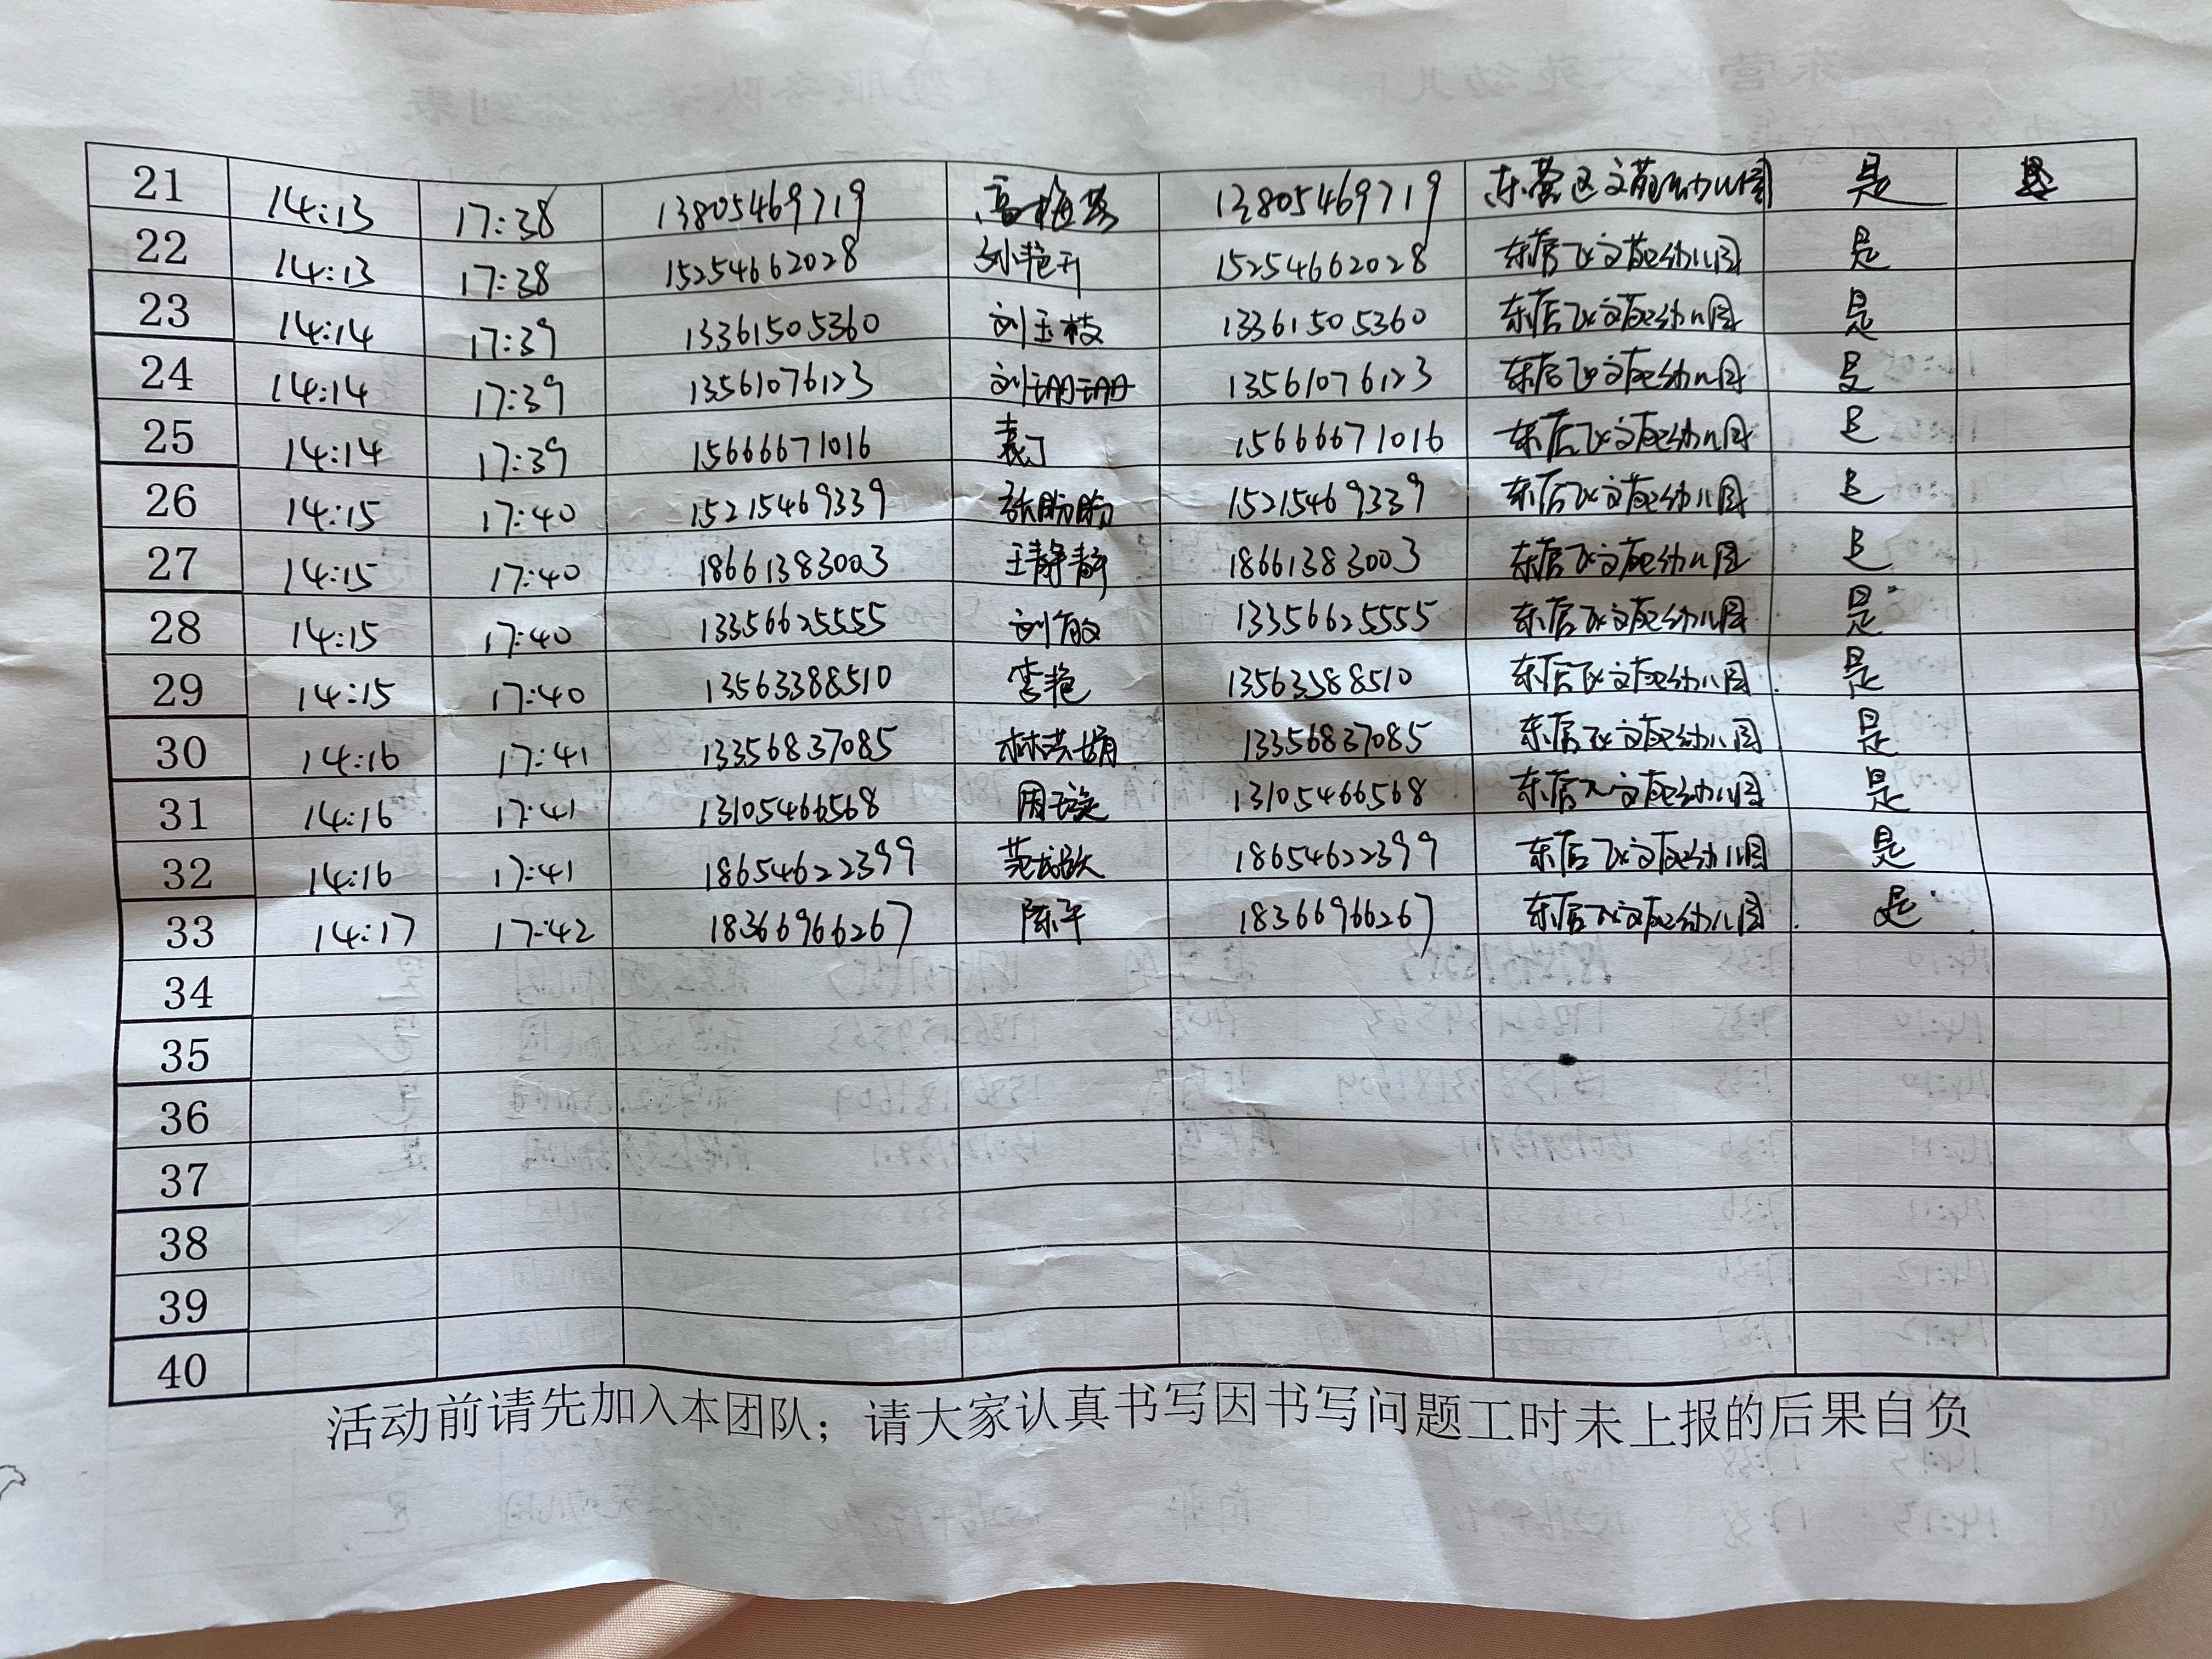 21 14:13 17:38 13805469719 13805469719 东营区文苑幼儿园 是
22 14:13 17:38 15254662028 15254662028 东营区文苑幼儿园 是
23 14:14 17:39 13361505360 刘玉枝 13361505360 东营区文苑幼儿园 是
24 14:14 17:39 13561076123 刘珊珊 13561076123 东营区文苑幼儿园 是
25 14:14 17:39 15666671016 袁丁 15666671016 东营区文苑幼儿园 是
26 14:15 17:40 15215469339 张盼盼 15215469339 东营区文苑幼儿园 是
27 14:15 17:40 18661383003 王静静 18661383003 东营区文苑幼儿园 是
28 14:15 17:40 13356625555 刘敏 13356625555 东营区文苑幼儿园 是
29 14:15 17:40 13563388510 李艳 13563588510 东营区文苑幼儿园 是
30 14:16 17:41 13356837085 林洪娟 13356837085 东营区文苑幼儿园 是
31 14:16 17:41 13105466568 周璇 13105466568 东营区文苑幼儿园 是
32 14:16 17:41 18654622399 18654622399 东营区文苑幼儿园 是
33 14:17 17:42 18366966267 陈平 18366966267 东营区文苑幼儿园 是
34
35
36
37
38
39
40
活动前请先加入本团队；请大家认真书写因书写问题工时未上报的后果自负